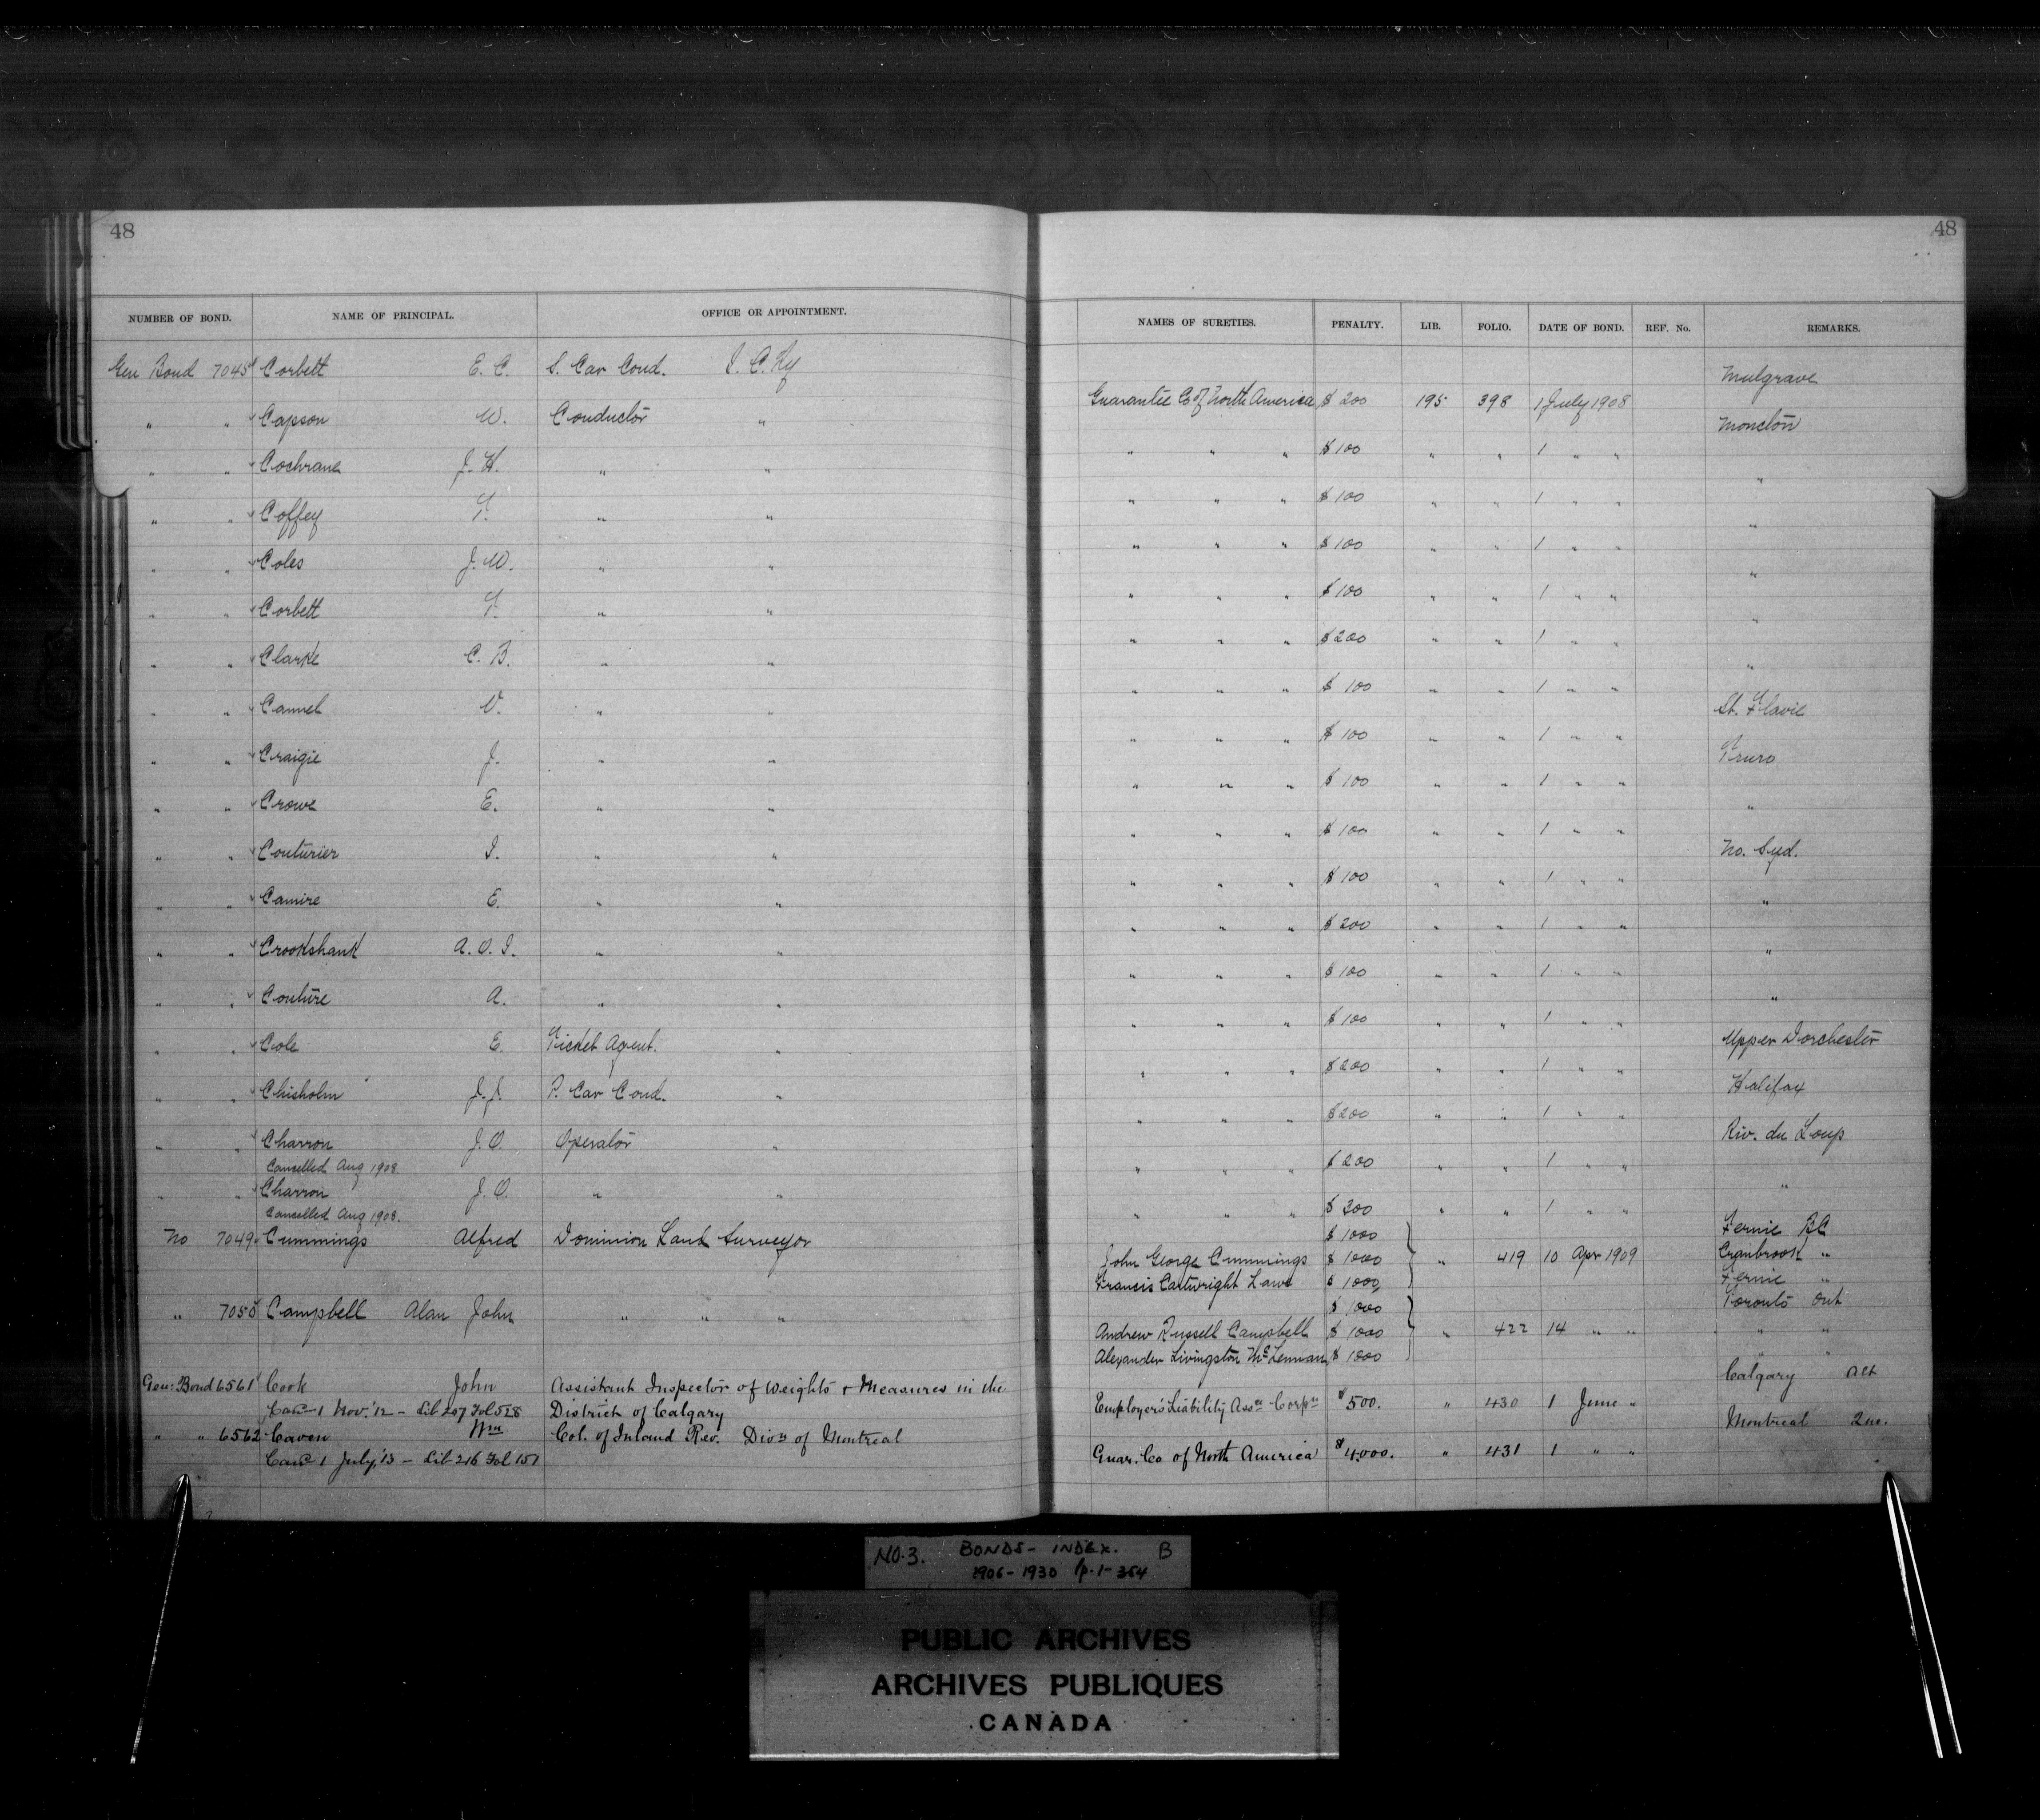 48
48
NUMBER OF BOND. NAME OF PRINCIPAL. OFFICE OR APPOINTMENT. NAMES OF SURETIES. PENALTY. LIB. FOLIO. DATE OF BOND. REF. No. REMARKS.
Gen Bond 7045 Corbett E. C. S. Car Cond. I. C. Ry Guarantee Co of North America $ 200 195 398 1 July 1908 Mulgrave
" " Capson W. Conductor " " " " $ 100 " " 1 " " Moncton
" " Cochrane J. H. " " " " " $ 100 " " 1 " " "
" " Coffey T. " " " " " $ 100 " " 1 " " "
" " Coles J. W. " " " " " $ 100 " " 1 " " "
" " Corbett T. " " " " " $ 200 " " 1 " " "
" " Clarke C. B. " " " " " $ 100 " " 1 " " "
" " V. " " " " " $ 100 " " 1 " " St. Flavie
" " Craigie J. " " " " " $ 100 " " 1 " " Truro
" " Crowe E. " " " " " $ 100 " " 1 " " "
" " Couturier I. " " " " " $ 100 " " 1 " " No. Syd.
" " Camire E. " " " " " $ 200 " " 1 " " "
" " Crookshank A. O. I. " " " " " $ 100 " " 1 " " "
" " Couture A. " " " " " $ 100 " " 1 " " "
" " Cole E. Ticket Agent. " " " " $ 200 " " 1 " " Upper Dorchester
" " Chisholm J. J. P. Car Cond. " " " " $ 200 " " 1 " " Halifax
" " Charron J. O. Operator " " " " $ 200 " " 1 " " Riv. du Loup
Cancelled Aug 1908
" " Charron J. O. " " " " " $ 300 " " 1 " " "
Cancelled Aug 1908.
No 7049 Cummings Alfred Dominion Land Surveyor $ 1000 Fernie BC
John George Cummings $ 1000 " 419 10 Apr 1909 Cranbrook "
Francis Cartwright Lawe $ 1000 Fernie "
" 7050 Campbell Alan John " " " $ 1000 Toronto Ont
Andrew Russell Campbell $ 1000 " 422 14 " " " "
Alexander Livingston McLennan $ 1000 " "
Gen: Bond 6561 Cook John Assistant Inspector of Weights & Measures in the Calgary Alt
Canc 1 Nov. '12 - Lib 207 Fol 528 District of Calgary Employer's Liability Assce Corpn $ 500. " 430 1 June "
" " 6562 Caven Wm Col. of Inland Rev. Divn of Montreal Montreal Que.
Canc 1 July, '13 - Lib 216 Fol 151 Guar. Co of North America $ 4,000. " 431 1 " "
NO. 3. BONDS - INDEX. B
1906 - 1930 p. 1 - 364
PUBLIC ARCHIVES
ARCHIVES PUBLIQUES
CANADA